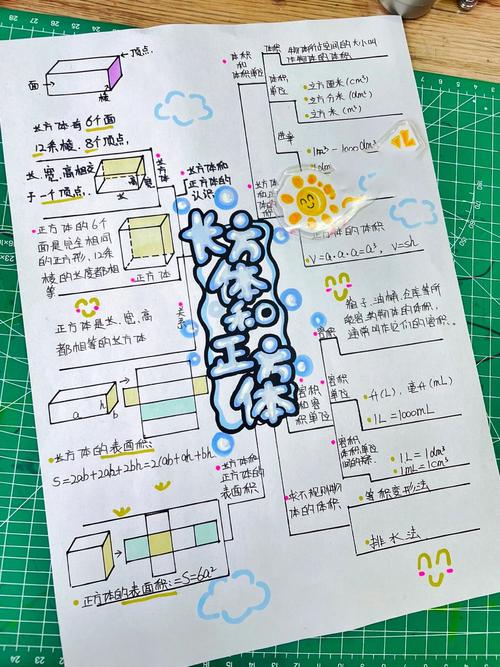 顶点
面
棱
长方体有6个面
12条棱、8个顶点,
长、宽、高相交
于一个顶点,
长
宽
高
长方体
长方体和
正方体的
认识
正方体的6个
面是完全相同
的正方形,12条
棱的长度都相
等
正方体
正方体是长、宽、高
都相等的长方体
关系
a
h
b
长方体的表面积:
S=2ab+2ah+2bh=2(ab+ah+bh
正方体的表面积:=S=6a²
长方体和
正方体的
表面积
长方体和正方体
体积
和
体积单位
体积
物体所占空间的大小叫
作物体的体积
体积
单位
立方厘米(cm³)
立方分米(dm³)
立方米(m³)
进率
1m³=1000dm³
正方体的体积
V=a·a·a=a³,V=sh
箱子、油桶、仓库等所
能容纳物体的体积,
通常叫作它们的容积。
容积
容积
和容
积单位
容积
单位
升(L)、毫升(mL)
1L=1000mL
容积
体积单位
间的关系
1L=1dm³
1mL=1cm³
求不规则物
体的体积
等积变形法
排水法